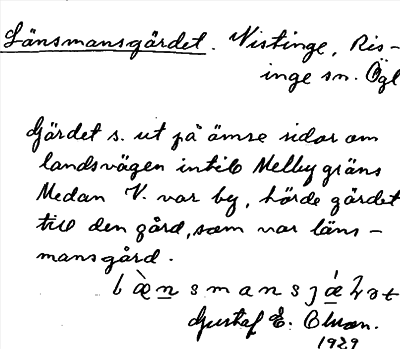 Länsmansgärdet. Vistinge, Ris-
inge sn. Ögl
Gärdet s. ut på ömse sidor om
landsvägen intill Melby gräns
Medan V. var by, hörde gärdet
till den gård, som var läns-
mansgård.
Gustaf E. Olson.
1929